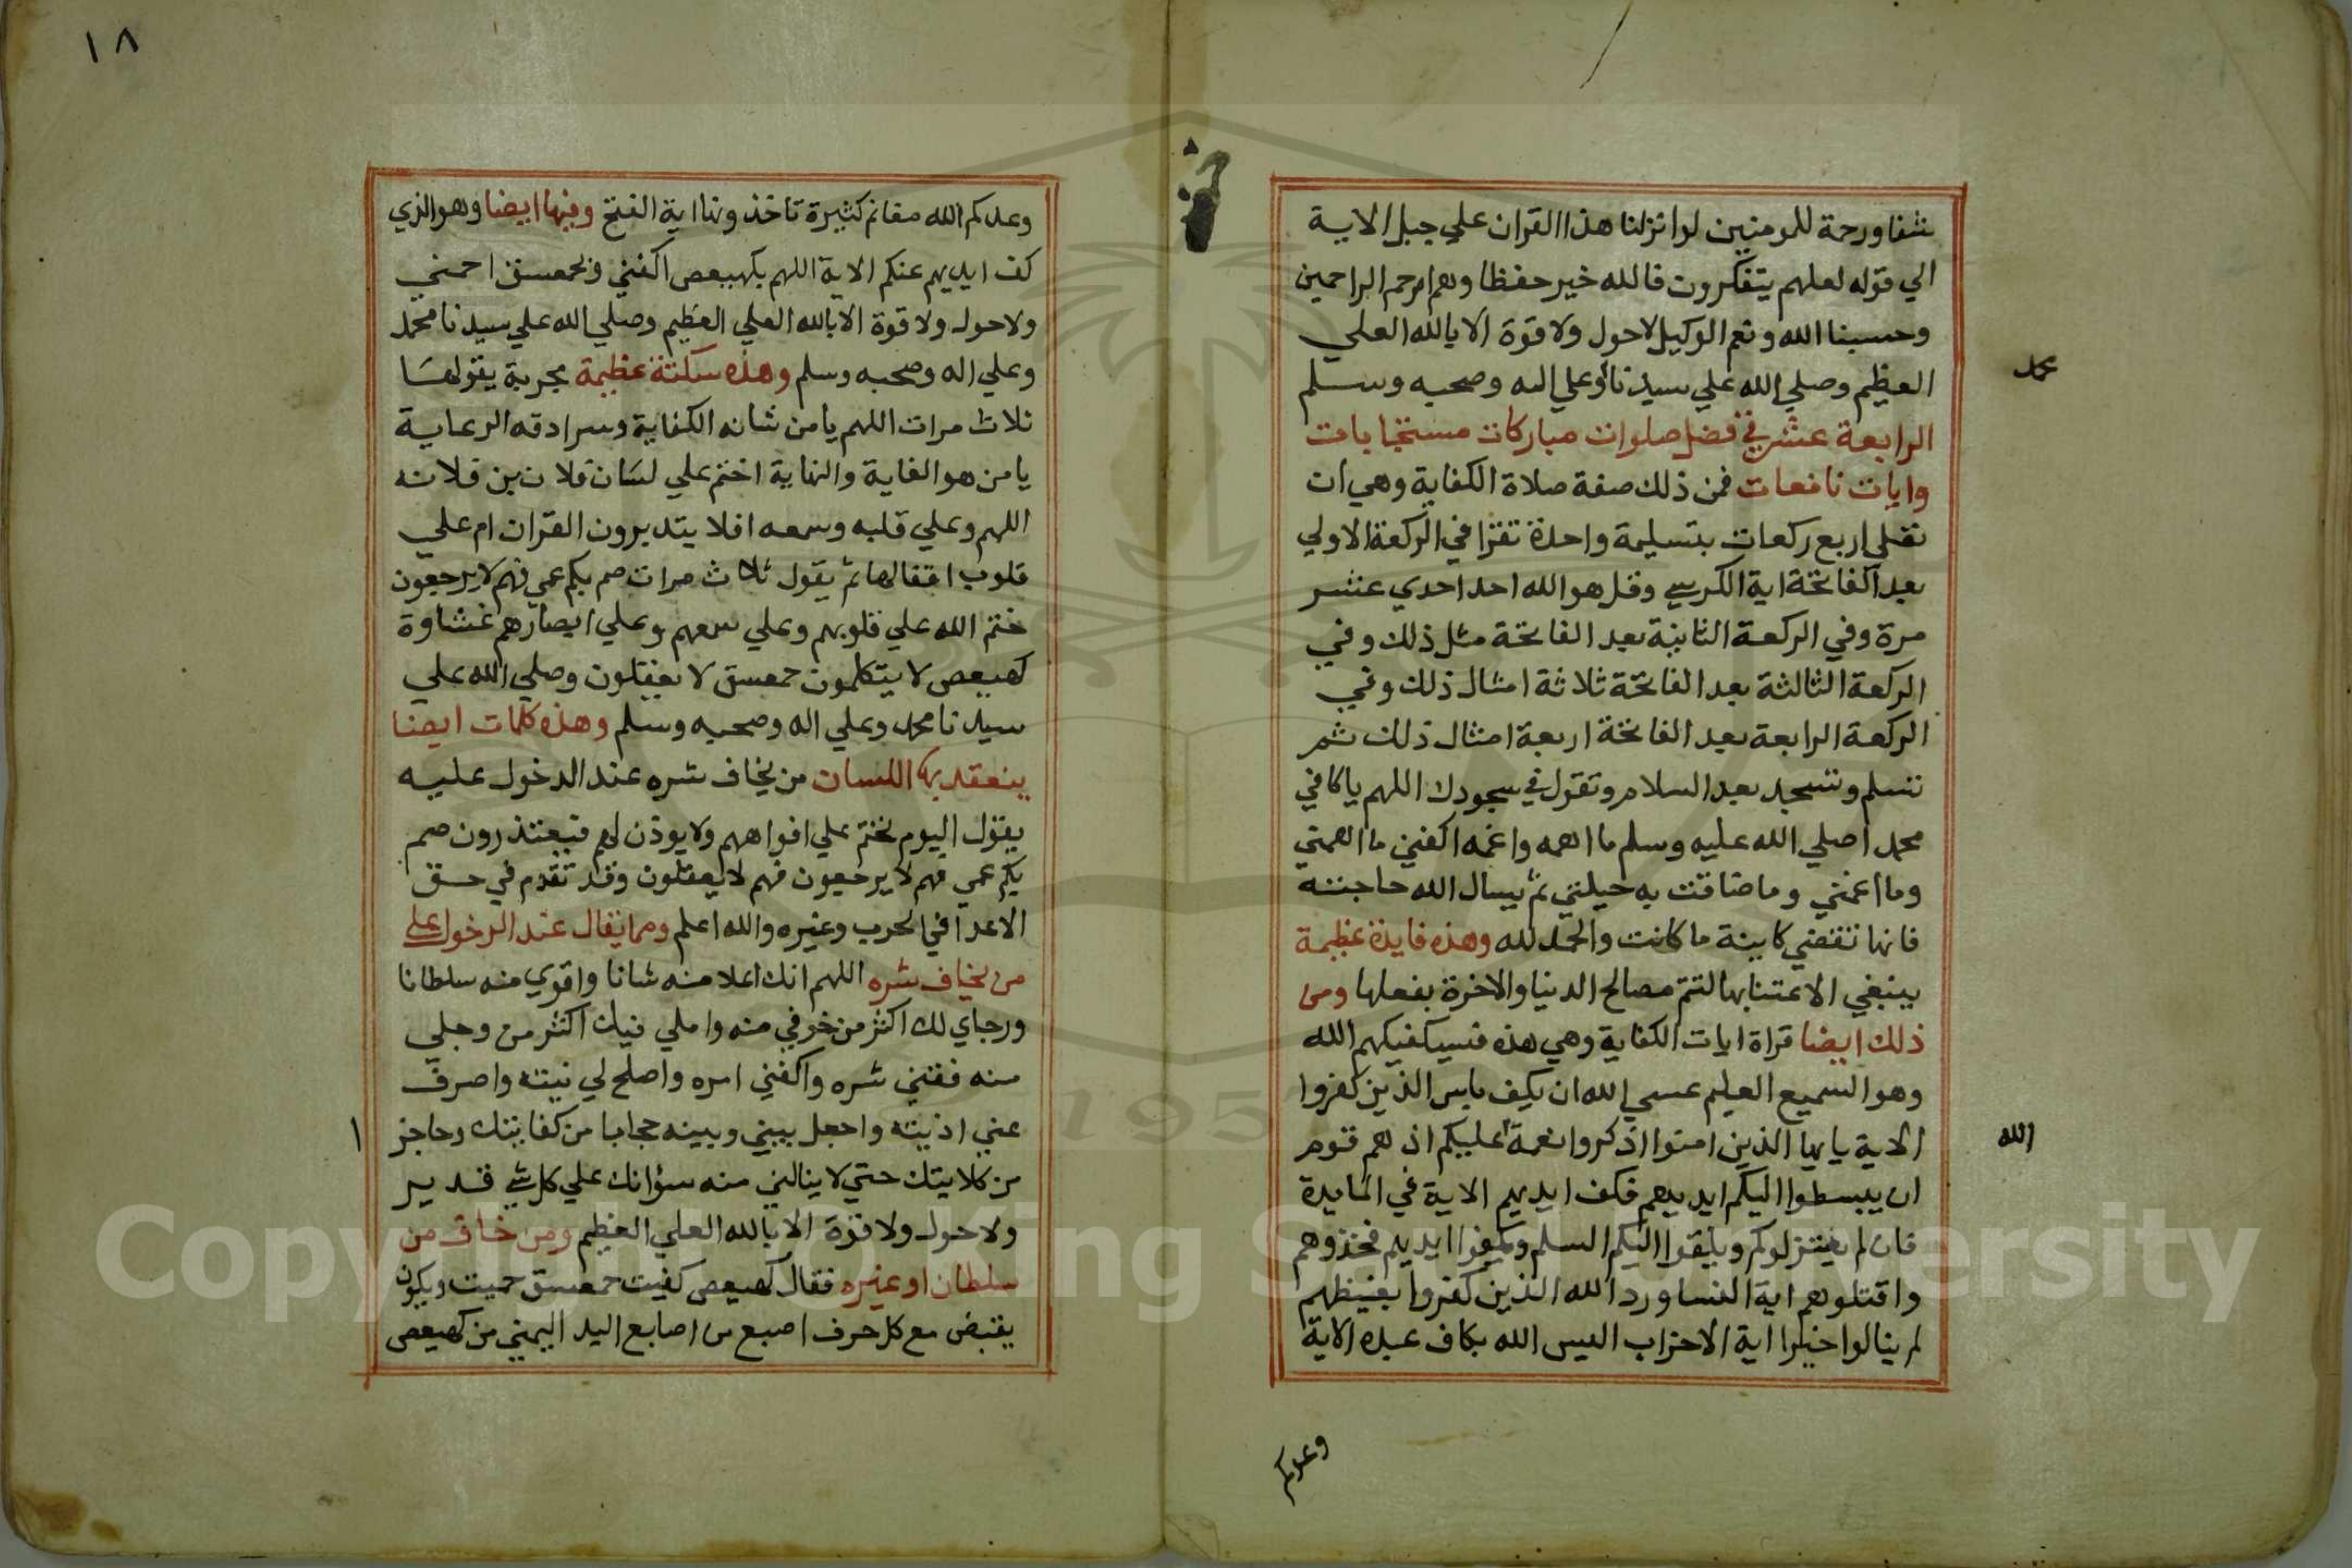 شفا ورحمة للمومنين لو انزلنا هذا القران علي جبل الاية
الي قوله لعلهم يتفكرون فالله خير حفظا وهو ارحم الراحمين
وحسبنا الله ونعم الوكيل لاحول ولا قوة الا بالله العلي
العظيم وصلي الله علي سيدنا وعلي اله وصحبه وسلم
محمد
الرابعة عشر في فضل صلوات مباركات مستجابات
وايات نافعات فمن ذلك صفة صلاة الكفاية وهي ان
تصلي اربع ركعات بتسليمة واحدة تقرا في الركعة الاولي
بعد الفاتحة اية الكرسي وقل هو الله احد احدي عشر
مرة وفي الركعة الثانية بعد الفاتحة مثل ذلك وفي
الركعة الثالثة بعد الفاتحة ثلاثة امثال ذلك وفي
الركعة الرابعة بعد الفاتحة اربعة امثال ذلك ثم
تسلم وتسجد بعد السلام وتقول في سجودك اللهم يا كافي
محمدا صلي الله عليه وسلم ما اهمه واغمه اكفني ما اهمني
وما اغمني وما ضاقت به حيلتي ثم يسال الله حاجته
فانها تقضي كاينة ما كانت والحمد لله وهذه فايدة عظيمة
ينبغي الاعتنا بها لتتم مصالح الدنيا والاخرة بفعلها ومن
ذلك ايضا قراة ايات الكفاية وهي هذه فسيكفيكهم الله
وهو السميع العليم عسي الله ان يكف باس الذين كفروا
الاية يايها الذين امنوا اذكروا نعمة عليكم اذ هم قوم
الله
ان يبسطوا اليكم ايديهم فكف ايديهم الاية في المايدة
فان لم يعتزلوكم ويلقوا اليكم السلم ويكفوا ايديهم فخذوهم
واقتلوهم اية النسا ورد الله الذين كفروا بغيظهم
لم ينالوا خيرا اية الاحزاب اليس الله بكاف عبده الاية
وعدكم
١٨
وعدكم الله مغانم كثيرة تاخذونها اية الفتح وفيها ايضا وهو الذي
كف ايديهم عنكم الاية اللهم بكهيعص اكفني وبحمعسق احمني
ولا حول ولا قوة الا بالله العلي العظيم وصلي الله علي سيدنا محمد
وعلي اله وصحبه وسلم وهذه سكتة عظيمة مجربة يقولها
ثلاث مرات اللهم يا من شانه الكفاية وسرادقه الرعاية
يا من هو الغاية والنهاية اختم علي لسان فلان بن فلانه
اللهم وعلي قلبه وسمعه افلا يتدبرون القران ام علي
قلوب اقفالها ثم يقول ثلاث مرات صم بكم عمي فهم لا يرجعون
ختم الله علي قلوبهم وعلي سمعهم وعلي ابصارهم غشاوة
كهيعص لا يتكلمون حمعسق لا يعقلون وصلي الله علي
سيدنا محمد وعلي اله وصحبه وسلم وهذه كلمات ايضا
ينعقد بها اللسان من يخاف شره عند الدخول عليه
يقول اليوم نختم علي افواههم ولا يوذن لهم فيعتذرون صم
بكم عمي فهم لا يرجعون فهم لا يعقلون وقد تقدم في حق
الاعدا في الحرب وغيره والله اعلم ومما يقال عند الدخول علي
من يخاف شره اللهم انك اعلا منه شانا واقوي منه سلطانا
ورجاي لك اكثر من خوفي منه واملي فيك اكثر من وجلي
منه فقني شره واكفني امره واصلح لي نيته واصرف
عني اذيته واجعل بيني وبينه حجابا من كفايتك وحاجز
ا
من كلايتك حتي لا ينالني منه سؤ انك علي كل شي قدير
ولا حول ولا قوة الا بالله العلي العظيم ومن خاف من
سلطان او غيره فقال كهيعص كفيت حمعسق حميت ويكون
يقبض مع كل حرف اصبع من اصابع اليد اليمني من كهيعص
Copyright © King Saud University
195